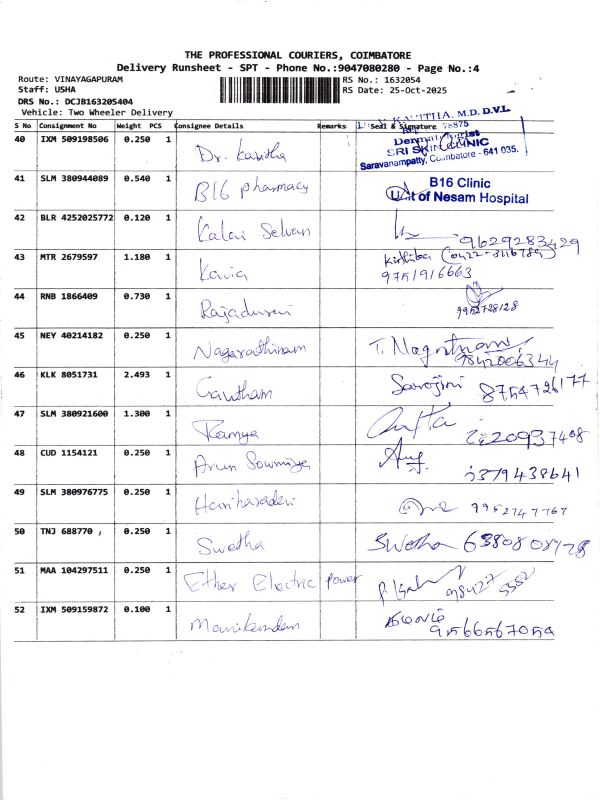 THE PROFESSIONAL COURIERS, COIMBATORE
Delivery Runsheet - SPT - Phone No.:9047080280 - Page No.:4
Route: VINAYAGAPURAM RS No.: 1632054
Staff: USHA RS Date: 25-Oct-2025
DRS No.: DCJB163205404
Vehicle: Two Wheeler Delivery
S No Consignment No Weight PCS Consignee Details Remarks Seal & Signature
KAVITHA, M.D. D.V.L.
78875
Dermatologist
SRI SKIN CLINIC
Saravanampatty, Coimbatore - 641 035.
40 IXM 509198506 0.250 1 Dr. Kavitha
41 SLM 380944089 0.540 1 B16 pharmacy B16 Clinic
Unit of Nesam Hospital
42 BLR 4252025772 0.120 1 Kalai Selvan 9629283429
43 MTR 2679597 1.180 1 Kavia
9751916663
44 RNB 1866409 0.730 1 Rajadurai 9952728128
45 NEY 40214182 0.250 1 Nagarathinam T. Nagrathnam
9842006344
46 KLK 8051731 2.493 1 Gautham Sarojini 8754726177
47 SLM 380921600 1.300 1 Ramya
48 CUD 1154121 0.250 1 Arun Sowmiya
49 SLM 380976775 0.250 1 Hariharadevi 9952747767
50 TNJ 688770 , 0.250 1 Swetha Swetha
51 MAA 104297511 0.250 1 Ether Electric power 98427 5552
52 IXM 509159872 0.100 1 Manikandan
9566567059